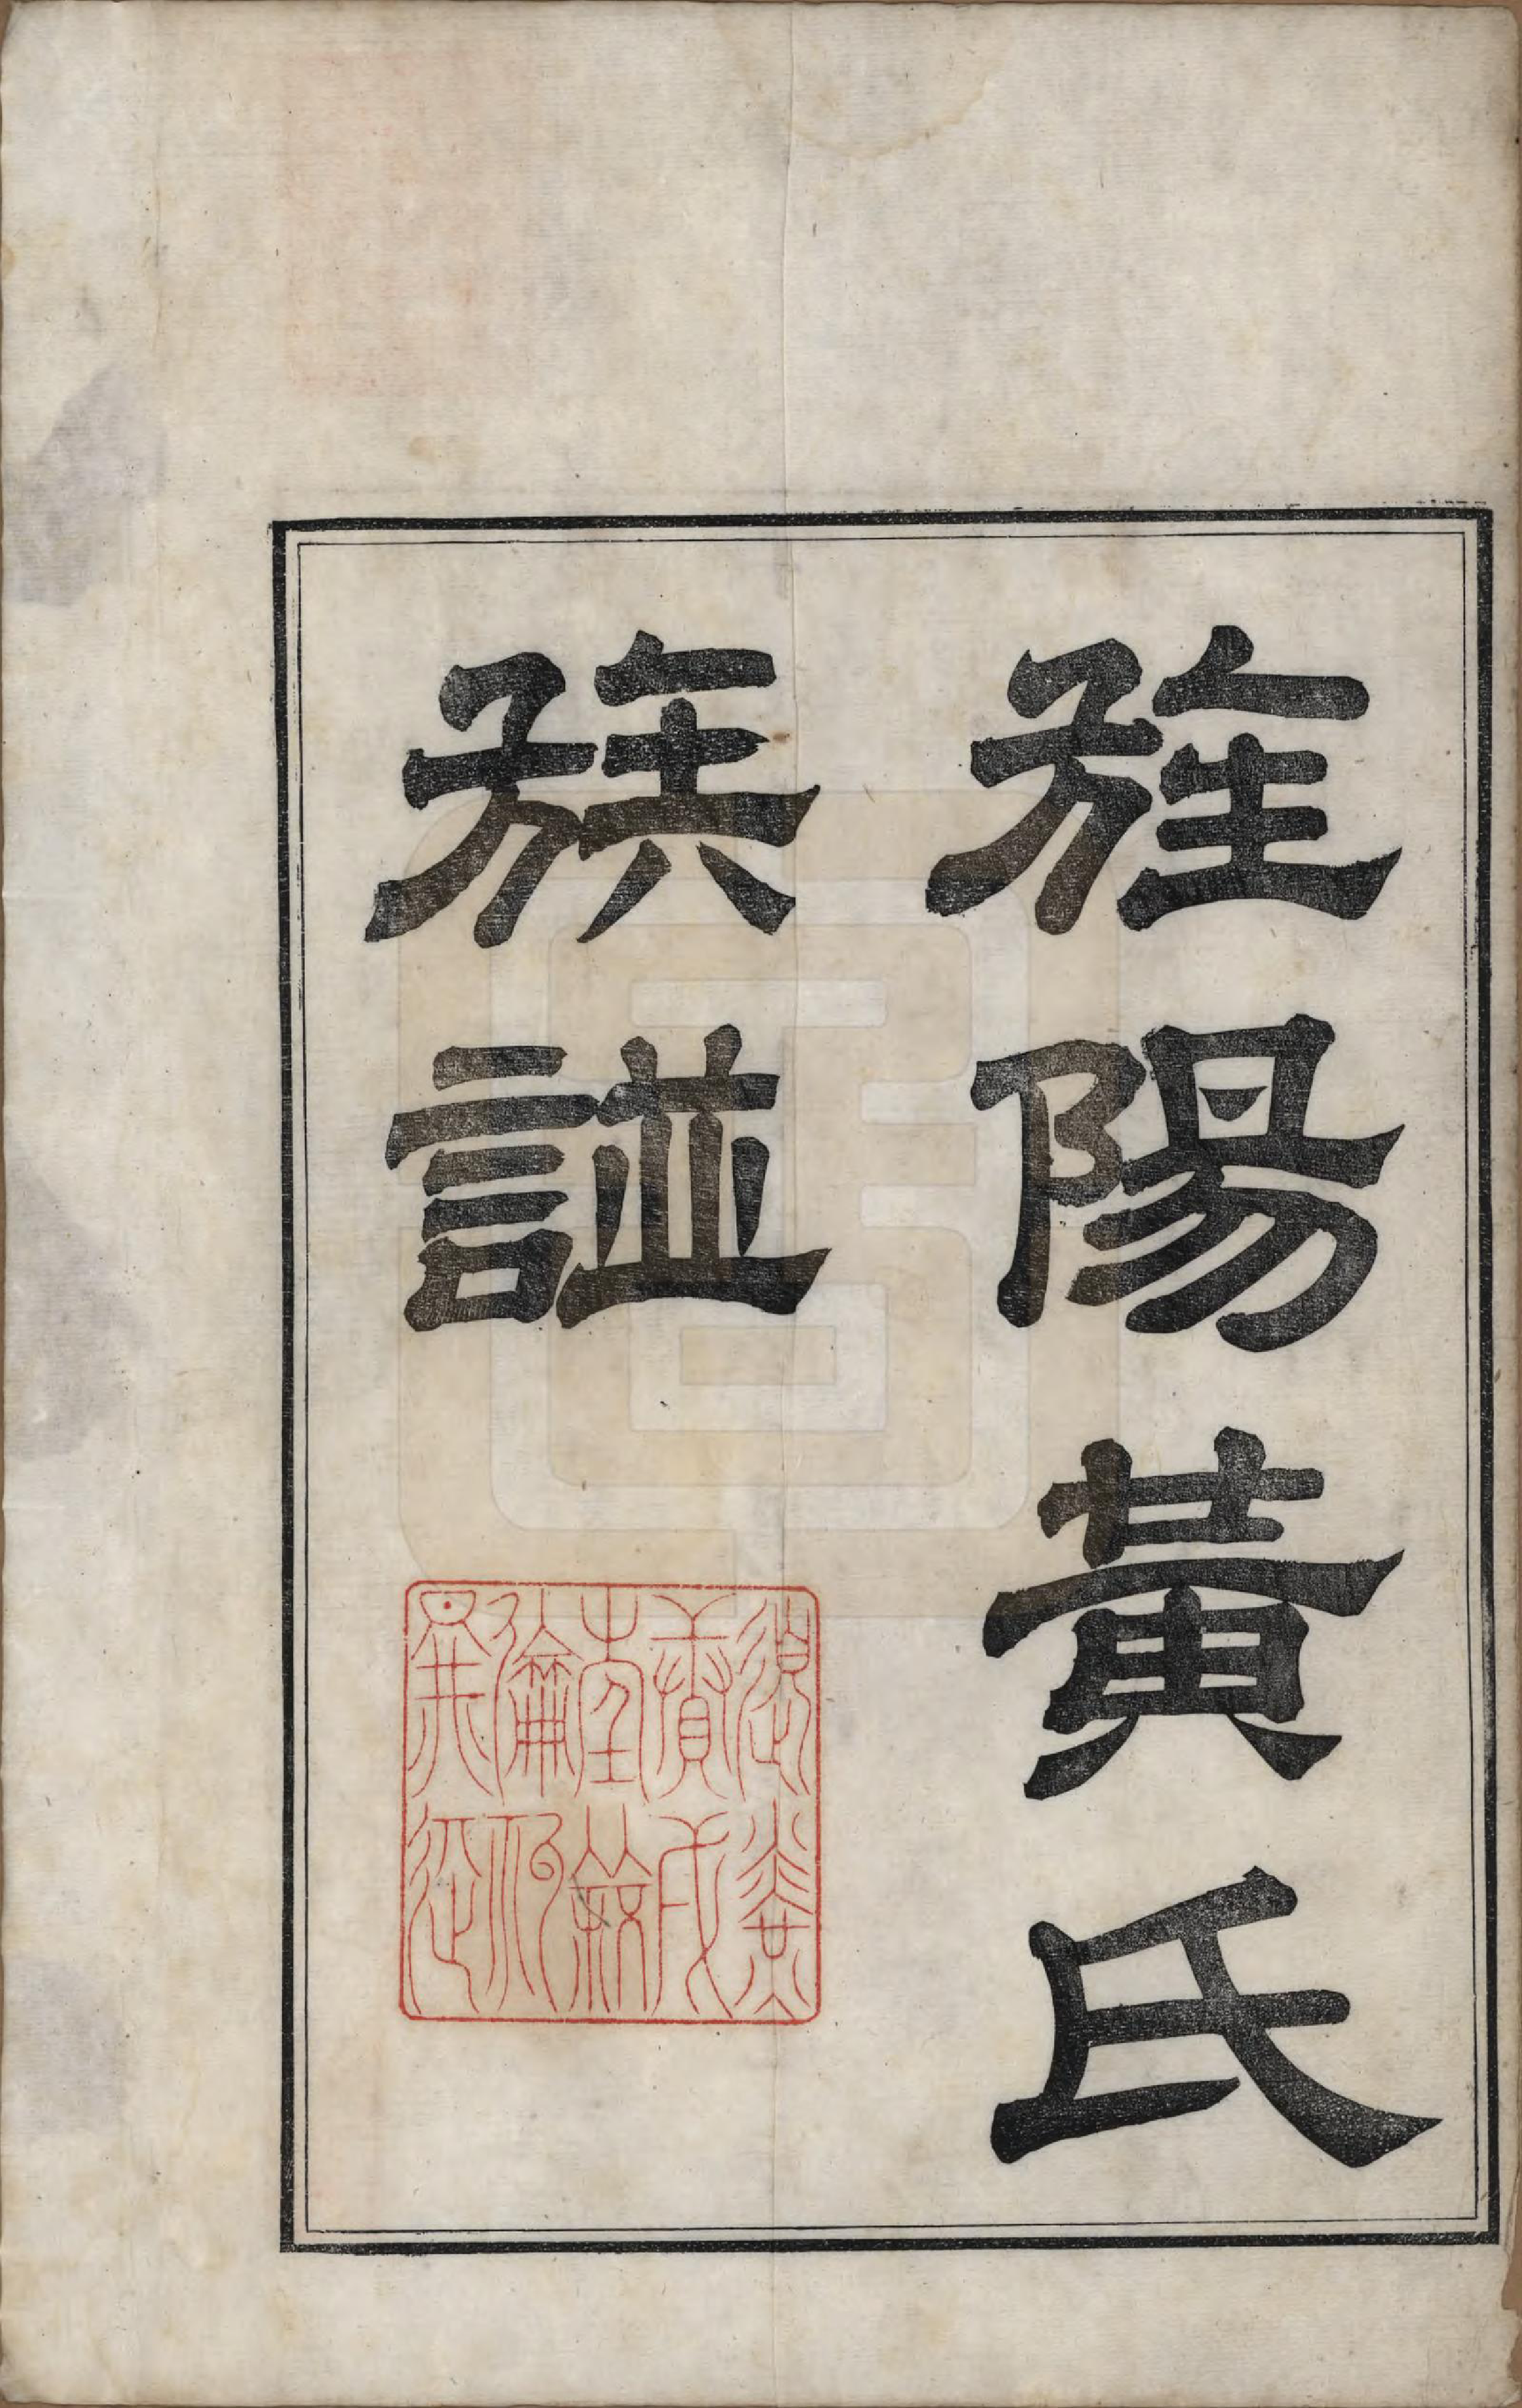 旌陽黄氏
族譜